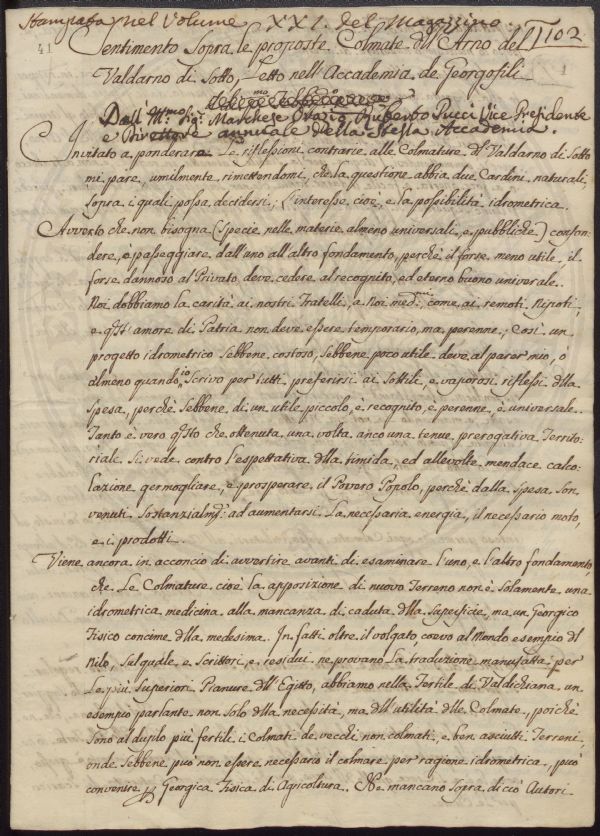 Stampata nel Volume XXI. del Magazzino.
41
1102
Sentimento Sopra le proposte Colmate dll'Arno del
Valdarno di Sotto, Letto nell'Accademia de Georgofili
Dall'Ill.mo Sig.r Marchese Orazio Ruberto Pucci Vice Presidente
e Direttore annuale della stessa Accademia.
Invitato a ponderare le riflessioni contrarie alle Colmature dl Valdarno di Sotto
mi pare, umilmente rimettendomi, che la questione abbia due Cardini naturali,
sopra i quali possa decidersi; l'interesse cioè, e la possibilità idrometrica.
Avverto che non bisogna (specie nelle materie almeno universali, e pubbliche) confon-
dere, o passeggiare dall'uno all'altro fondamento, perchè il forse meno utile, il
forse dannoso al Privato deve cedere al recognito, ed eterno buono universale.
Noi dobbiamo la carità ai nostri Fratelli, a Noi med.mi come ai remoti Nipoti;
e q.st' amore di Patria non deve essere temporario, ma perenne; Così un
progetto idrometrico sebbene costoso, sebbene poco utile deve al parer mio, ò
almeno quando io scrivo per tutti preferirsi ai sottili, e vaporosi riflessi dlla
spesa, perchè sebbene di un utile piccolo, è recognito, e perenne, è universale.
Tanto è vero q.sto che ottenuta una volta anco una tenue prerogativa Territo-
riale si vede contro l'espettativa dlla timida, ed allevolte mendace calco-
lazione germogliare, e prosperare il Povero Popolo, perchè dalla spesa son
venuti sostanzialm.e ad aumentarsi la necessaria energia, il necessario moto,
e i prodotti.
Viene ancora in acconcio di avvertire avanti di esaminare l'uno, e l'altro fondamento,
che le Colmature cioè la apposizione di nuovo Terreno non è solamente una
idrometrica medicina alla mancanza di caduta dlla superficie, ma un Georgico
Fisico concime dlla medesima. In fatti oltre il volgato, coevo al Mondo esempio dl
Nilo, sul quale e Scrittori, e residui ne provano la traduzione manufatta per
le più superiori Pianure dll'Egitto, abbiamo nella Fertile di Valdichiana un
esempio parlante non solo dlla necessità, ma dll'utilità dlle Colmate, poichè
sono al duplo più fertili i Colmati de vecchi non colmati, e ben asciutti Terreni,
onde sebbene può non essere necessario il colmare per ragione idrometrica, può
convenire p Georgica Fisica di Agricoltura. Ne mancano sopra di ciò Autori-